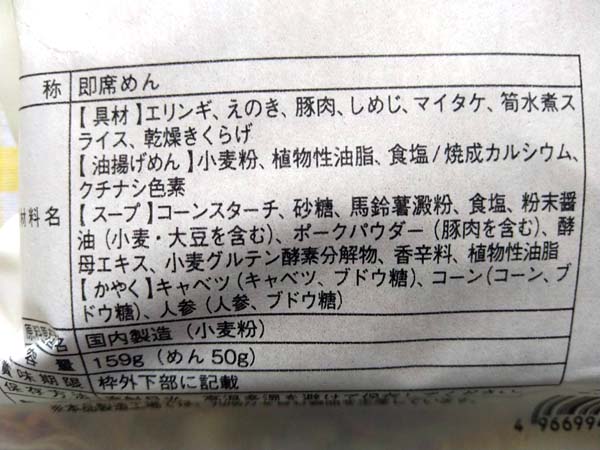 称 即席めん
【具材】エリンギ、えのき、豚肉、しめじ、マイタケ、筍水煮ス
ライス、乾燥きくらげ
【油揚げめん】小麦粉、植物性油脂、食塩/焼成カルシウム、
クチナシ色素
材料名 【スープ】コーンスターチ、砂糖、馬鈴薯澱粉、食塩、粉末醤
油(小麦・大豆を含む)、ポークパウダー(豚肉を含む)、酵
母エキス、小麦グルテン酵素分解物、香辛料、植物性油脂
【かやく】キャベツ(キャベツ、ブドウ糖)、コーン(コーン、ブ
ドウ糖)、人参(人参、ブドウ糖)
名 国内製造(小麦粉)
容量 159g(めん50g)
賞味期限 枠外下部に記載
保存方法
4 966994